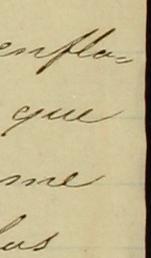 enflo=
que
me
los